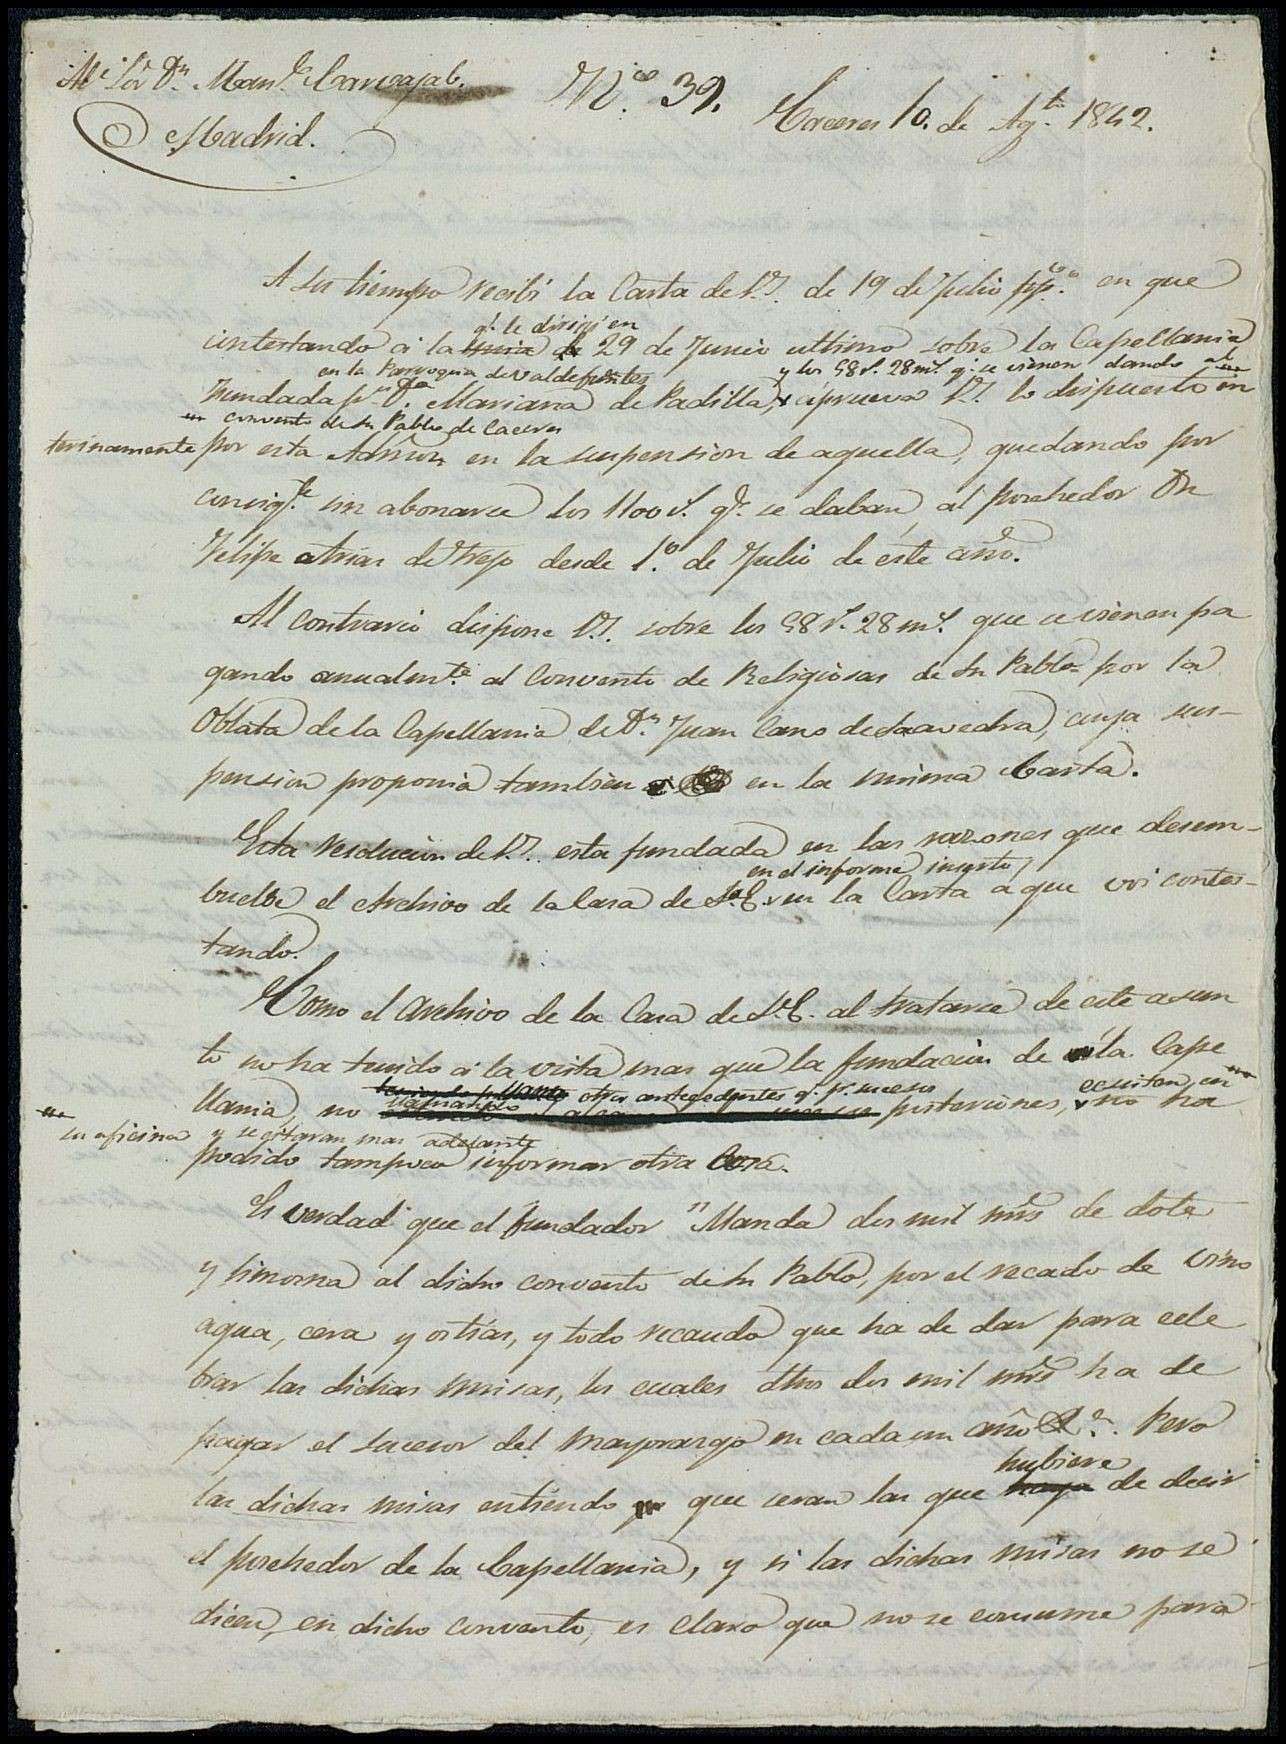 Sor Dn. Manl. Carvajal.
Nº. 39.
Caceres 10. de Agto. 1842.
Madrid.
A su tiempo recibi la Carta de V.S. de 19 de Julio ppdo. en que
q. le dirigi en
contestando á la mia de 29 de Junio ultimo sobre la Capellania
en la Parroquia de Valdefuentes
y los 58 rs. 28 ms. q. se vienen dando al
fundada pr. Da. Mariana de Padilla, aprueva V.S. lo dispuesto in
convento de Sn Pablo de Caceres
terinamente por esta Admon en la suspension de aquella, quedando por
consigte. sin abonarse los 1100 rs. qe. se daban, al posehedor Dn
Felipe Arias de Trejo desde 1.º de Julio de éste año.
Al contrario dispone V.S. sobre los 58 rs. 28 ms. que se vienen pa
gando anualmte. al Convento de Religiosas de Sn Pablo por la
Oblata de la Capellania de Dn. Juan Cano de Saavedra, cuya sus-
pension proponia tambien en la misma Carta.
Esta resolucion de V.S. esta fundada en las razones que desem-
en el informe inserto,
buelve el Archivo de la Casa de S.E. en la Carta a que voi contes-
tando.
Como el Archivo de la Casa de S.E. al tratarse de este asun
to no ha tenido á la vista mas que la fundacion de la Cape
otros antecedentes q. pr. sucesos
ecsisten en
llania, no posteriores, no ha
su oficina y se citaran mas adelante
podido tampoco informar otra cosa.
Es verdad que el fundador "Manda dos mil mrs de dote
y limosna al dicho convento de Sn Pablo, por el recado de vino
agua, cera y ostias, y todo recaudo que ha de dar para cele
brar las dichas misas, los cuales dhos dos mil mrs ha de
pagar el sucesor del mayorazgo en cada un año &a. Pero
hubiere
las dichas misas entiendo que seran las que haya de decir
el posehedor de la Capellania, y si las dichas misas no se
dicen, en dicho convento, es claro que no se consume para